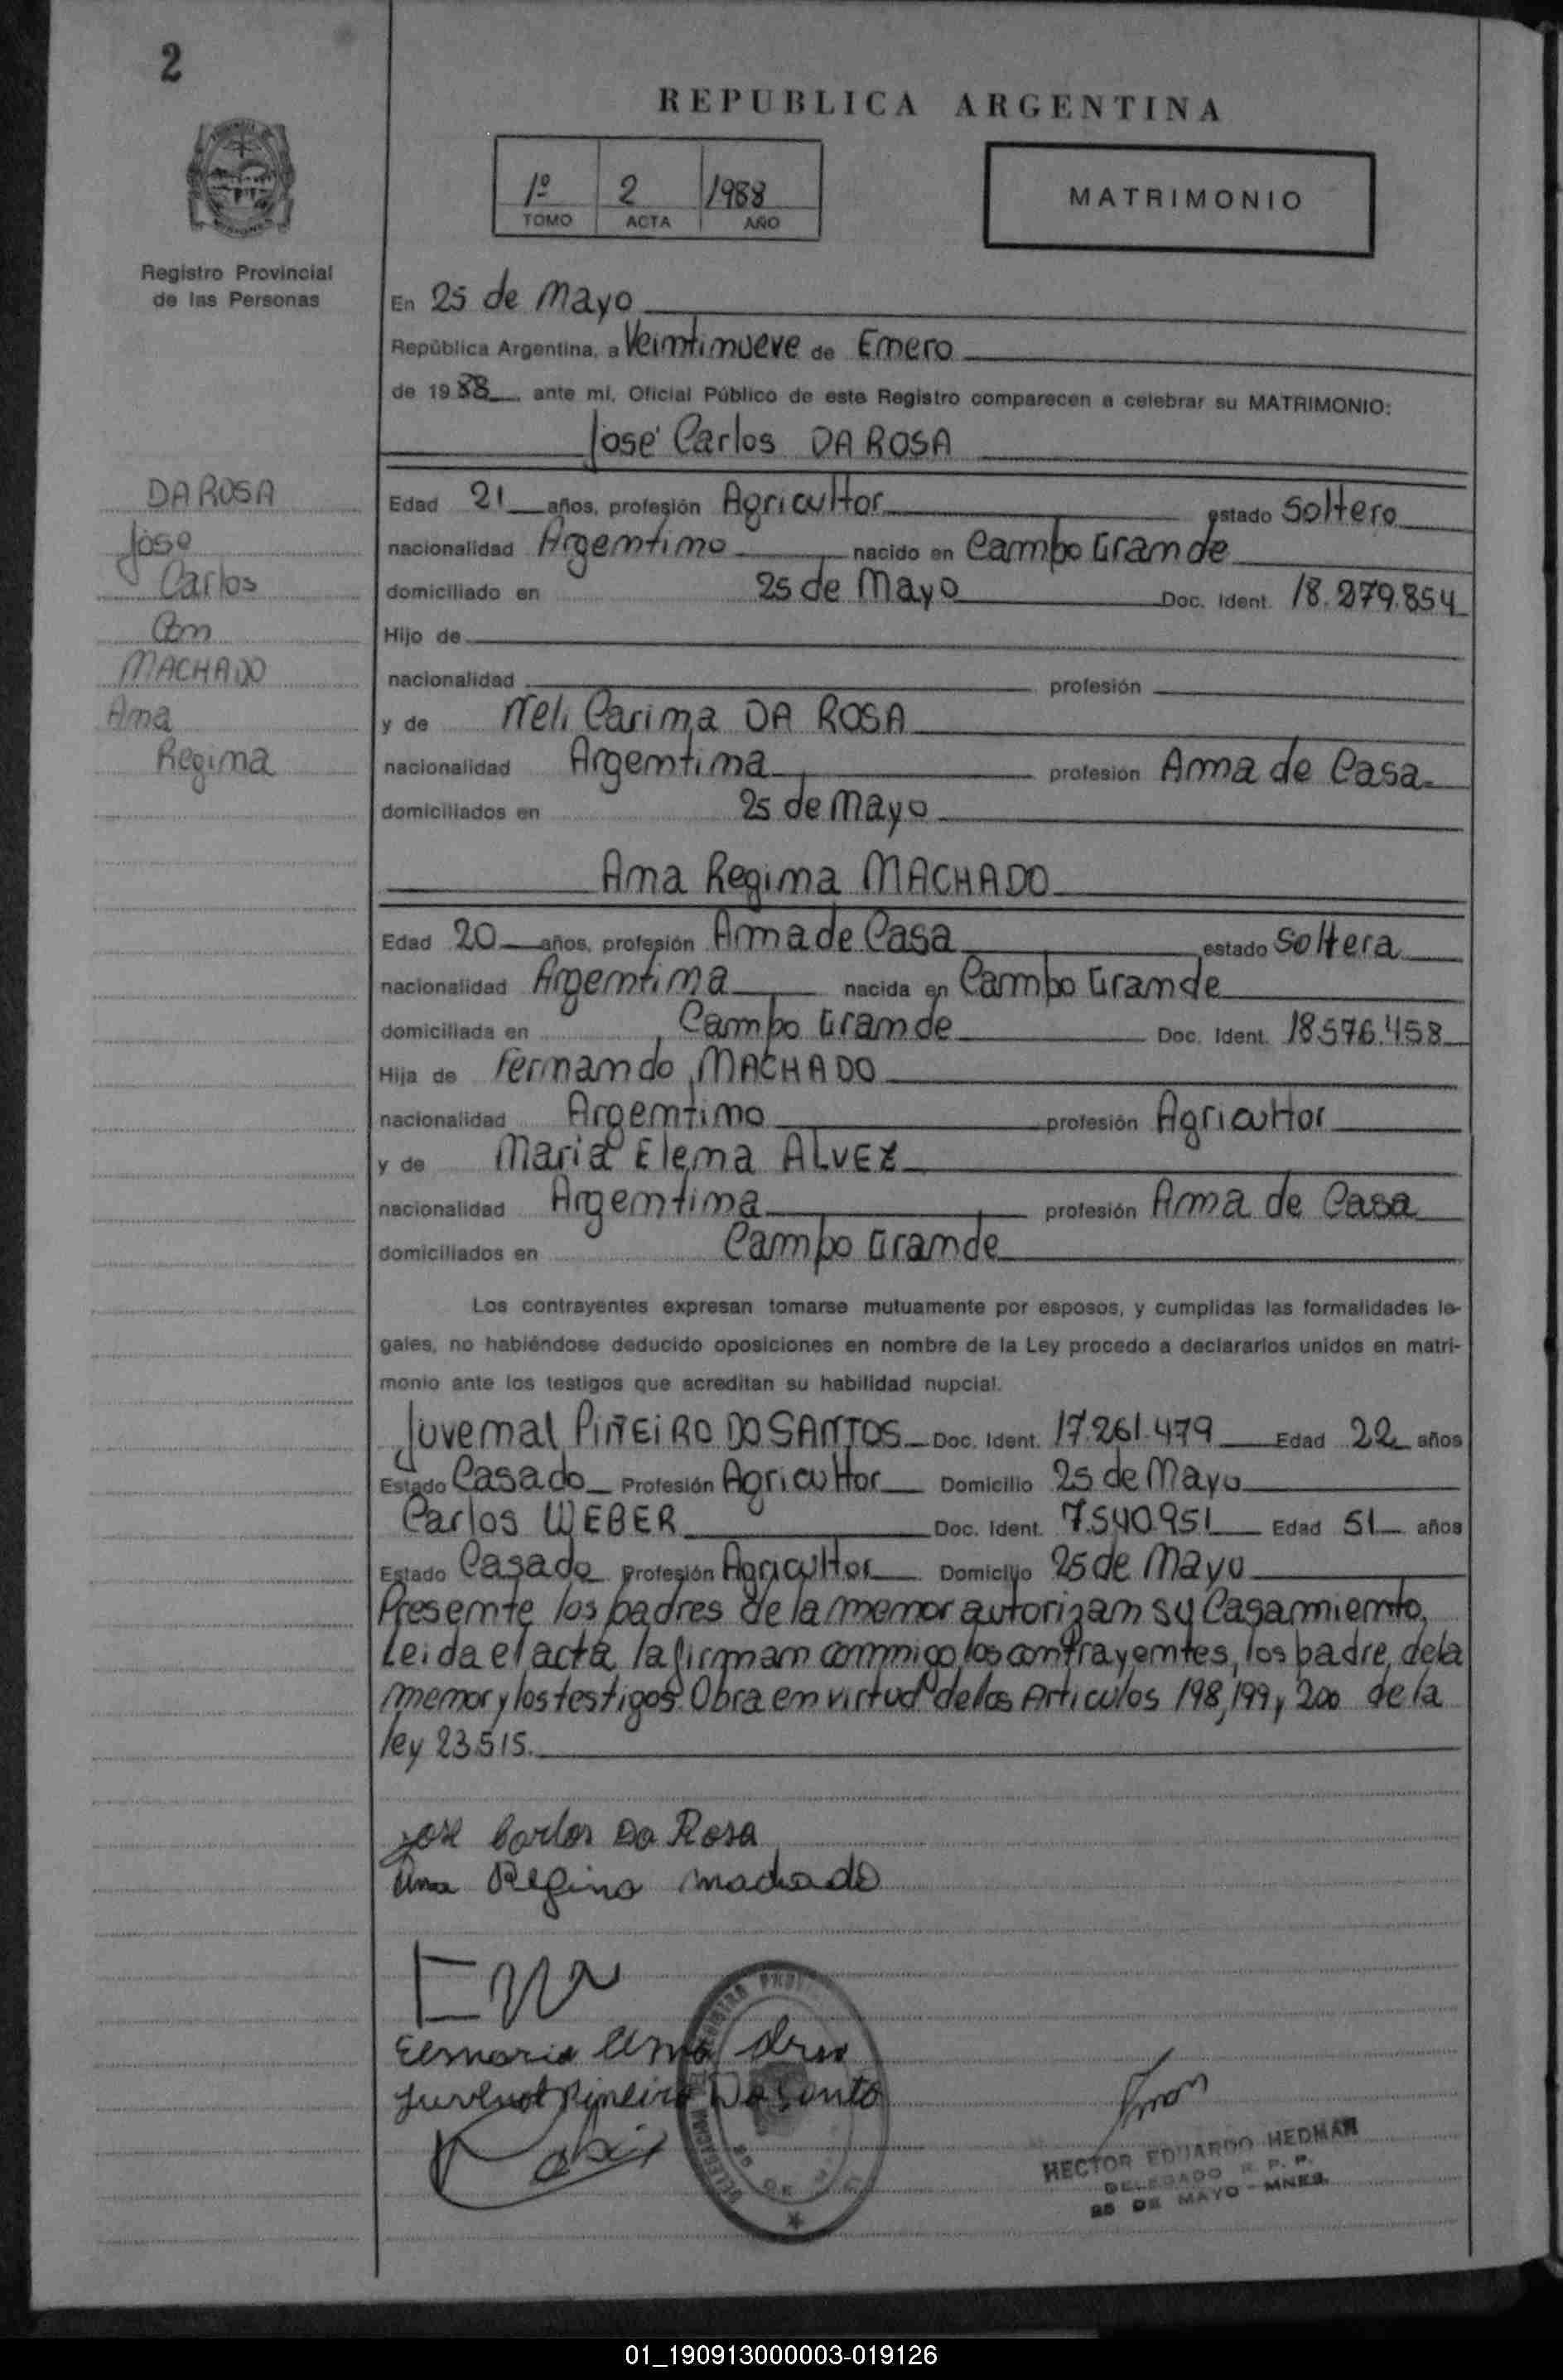 2
REPUBLICA ARGENTINA
1º 2 1988
TOMO ACTA AÑO
MATRIMONIO
Registro Provincial
de las Personas
En 25 de Mayo
República Argentina, a Veintinueve de Enero
de 1988 ante mí, Oficial Público de este Registro comparecen a celebrar su MATRIMONIO:
José Carlos DA ROSA
DA ROSA
Jose
Carlos
Con
MACHADO
Ana
Regina
Edad 21 años, profesión Agricultor estado Soltero
nacionalidad Argentino nacido en Campo Grande
domiciliado en 25 de Mayo Doc. Ident. 18.279.854
Hijo de
nacionalidad profesión
y de Neli Carina DA ROSA
nacionalidad Argentina profesión Ama de Casa
domiciliados en 25 de Mayo
Ana Regina MACHADO
Edad 20 años, profesión Ama de Casa estado Soltera
nacionalidad Argentina nacida en Campo Grande
domiciliada en Campo Grande Doc. Ident. 18.576.458
Hija de Fernando MACHADO
nacionalidad Argentino profesión Agricultor
y de Maria Elena ALVEZ
nacionalidad Argentina profesión Ama de Casa
domiciliados en Campo Grande
Los contrayentes expresan tomarse mutuamente por esposos, y cumplidas las formalidades le-
gales, no habiéndose deducido oposiciones en nombre de la Ley procedo a declararlos unidos en matri-
monio ante los testigos que acreditan su habilidad nupcial.
Juvenal PIÑEIRO DO SANTOS Doc. Ident. 17.261.479 Edad 22 años
Estado Casado Profesión Agricultor Domicilio 25 de Mayo
Carlos WEBER Doc. Ident. 7.540.951 Edad 51 años
Estado Casado Profesión Agricultor Domicilio 25 de Mayo
Presente los padres de la menor autorizan su Casamiento.
Leida el acta la firman conmigo los contrayentes, los padre de la
menor y los testigos. Obra en virtud de los Articulos 198, 199 y 200 de la
ley 23.515.
José Carlos Da Rosa
Ana Regina machado
HECTOR EDUARDO HEDMAN
DELEGADO R. P. P.
25 DE MAYO - MNES.
01_190913000003-019126